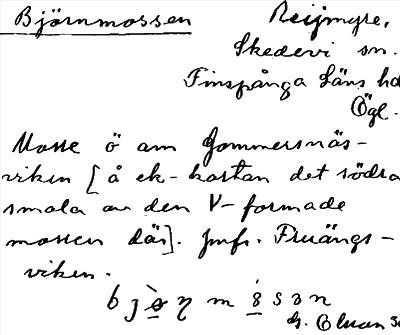 Björnmossen
Reijmyre,
Skedevi sn.
Finspånga läns hd
Ögl.
Mosse ö om Gommersnäs-
viken [å ek-kartan det södra
smala av den V-formade
mossen där]. Jmfr. Fruängs-
viken.